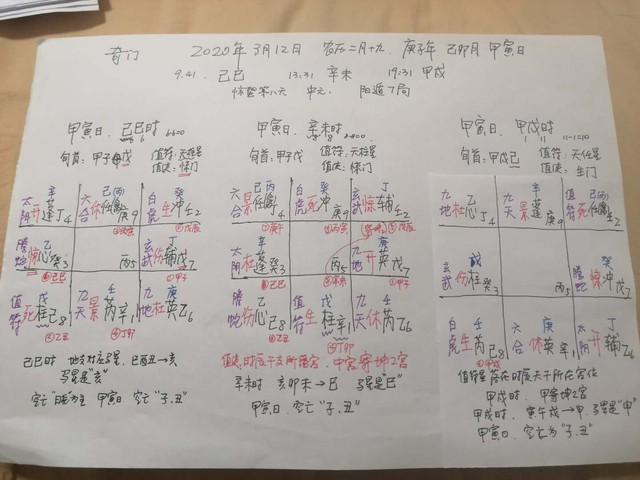 奇门 2020年3月12日 农历二月十九. 庚子年 己卯月 甲寅日
9.41. 己巳 13:31 辛未 19:31 甲戌
惊蛰第八天 中元. 阳遁7局
甲寅日. 己巳时
旬首: 甲子戊 值符: 天柱星
值使: 惊门
辛 己(丙) 癸
太阴 开蓬丁4 六合 休禽庚9 白虎 生冲壬2
乙 丁
螣蛇 惊心癸3 丙5 玄武 伤辅戊7
戊 壬 庚
值符 死柱己8 九天 景芮辛1 九地 杜英乙6
己巳时 地支对应马星, 巳酉丑→亥
马星是"亥"
空亡"日为主 甲寅日 空亡"子.丑"
甲寅日. 辛未时
旬首: 甲子戊 值符: 天柱星
值使: 惊门
己丙 癸 丁
六合 景任禽4 白虎 死冲9 玄武 惊辅壬2
辛 庚
太阴 杜蓬癸3 丙5 九地 开英戊7
乙 戊 壬
螣蛇 伤心己8 值符 生柱辛1 九天 休芮乙6
值使: 时辰干支所落宫. 中宫寄坤2宫
辛未时 亥卯未→巳 马星是"巳"
甲寅日. 空亡"子.丑"
甲寅日. 甲戌时
旬首: 甲戌己 值符: 天任星
值使: 生门
乙 辛 己(丙)
九地 杜心丁4 九天 景蓬庚9 值符 死任禽壬2
戊 癸
玄武 伤柱癸3 丙5 螣蛇 惊冲戊7
壬 庚 丁
白虎 生芮己8 六合 休英辛1 太阴 开辅乙6
值符星落在时辰天干所在宫位
甲戌时. 甲寄坤2宫
甲戌时. 寅午戌→申. 马星是"申"
甲寅日. 空亡为"子.丑"